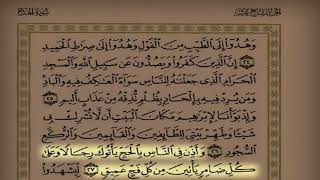 الجزء السابع عشر
سورة الحج
وَهُدُوٓا۟ إِلَى ٱلطَّيِّبِ مِنَ ٱلْقَوْلِ وَهُدُوٓا۟ إِلَىٰ صِرَٰطِ ٱلْحَمِيدِ
٢٤ إِنَّ ٱلَّذِينَ كَفَرُوا۟ وَيَصُدُّونَ عَن سَبِيلِ ٱللَّهِ وَٱلْمَسْجِدِ
ٱلْحَرَامِ ٱلَّذِى جَعَلْنَٰهُ لِلنَّاسِ سَوَآءً ٱلْعَٰكِفُ فِيهِ وَٱلْبَادِ
وَمَن يُرِدْ فِيهِ بِإِلْحَادٍۭ بِظُلْمٍ نُّذِقْهُ مِنْ عَذَابٍ أَلِيمٍ ٢٥
وَإِذْ بَوَّأْنَا لِإِبْرَٰهِيمَ مَكَانَ ٱلْبَيْتِ أَن لَّا تُشْرِكْ بِى
شَيْـًٔا وَطَهِّرْ بَيْتِىَ لِلطَّآئِفِينَ وَٱلْقَآئِمِينَ وَٱلرُّكَّعِ
ٱلسُّجُودِ ٢٦ وَأَذِّن فِى ٱلنَّاسِ بِٱلْحَجِّ يَأْتُوكَ رِجَالًا وَعَلَىٰ
كُلِّ ضَامِرٍ يَأْتِينَ مِن كُلِّ فَجٍّ عَمِيقٍ ٢٧ لِّيَشْهَدُوا۟